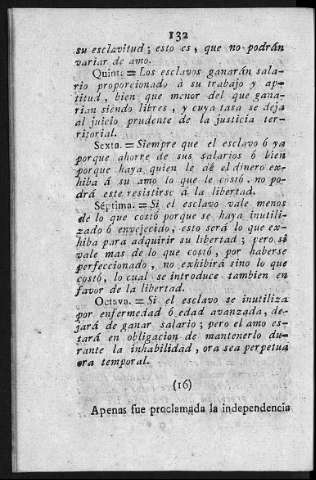 132
su esclavitud; esto es, que no podrán
variar de amo.
Quint. = Los esclavos ganarán sala-
rio proporcionado á su trabajo y ap-
titud, bien que menor del que gana-
rian siendo libres, y cuya tasa se deja
al juicio prudente de la justicia ter-
ritorial.
Sexta. = Siempre que el esclavo ó ya
porque ahorre de sus salarios ó bien
porque haya quien le dé el dinero ex-
hiba á su amo lo que le costó, no po-
drá este resistirse á la libertad.
Séptima. = Si el esclavo vale menos
de lo que costó porque se haya inutili-
zado ó envejecido, esto será lo que ex-
hiba para adquirir su libertad; pero si
vale mas de lo que costó, por haberse
perfeccionado, no exhibirá sino lo que
costó, lo cual se introduce tambien en
favor de la libertad.
Octava. = Si el esclavo se inutiliza
por enfermedad ó edad avanzada, de-
jará de ganar salario; pero el amo es-
tará en obligacion de mantenerlo du-
rante la inhabilidad, ora sea perpetua
ora temporal.
(16)
Apenas fue proclamada la independencia